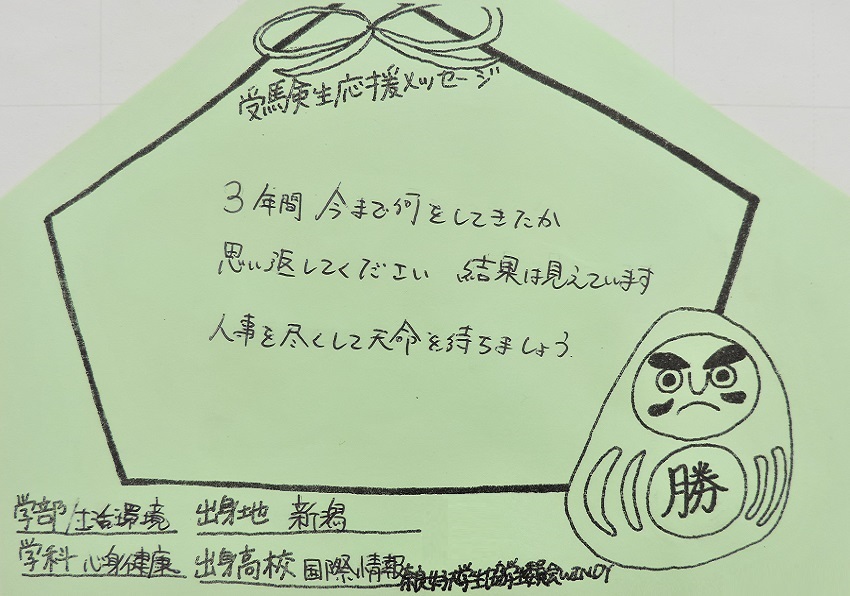 受験生応援メッセージ
3年間 今まで何をしてきたか
思い返してください 結果は見えています
人事を尽くして天命を待ちましょう
勝
学部/生活環境 出身地 新潟
学科 心身健康 出身高校 国際情報
WINDY